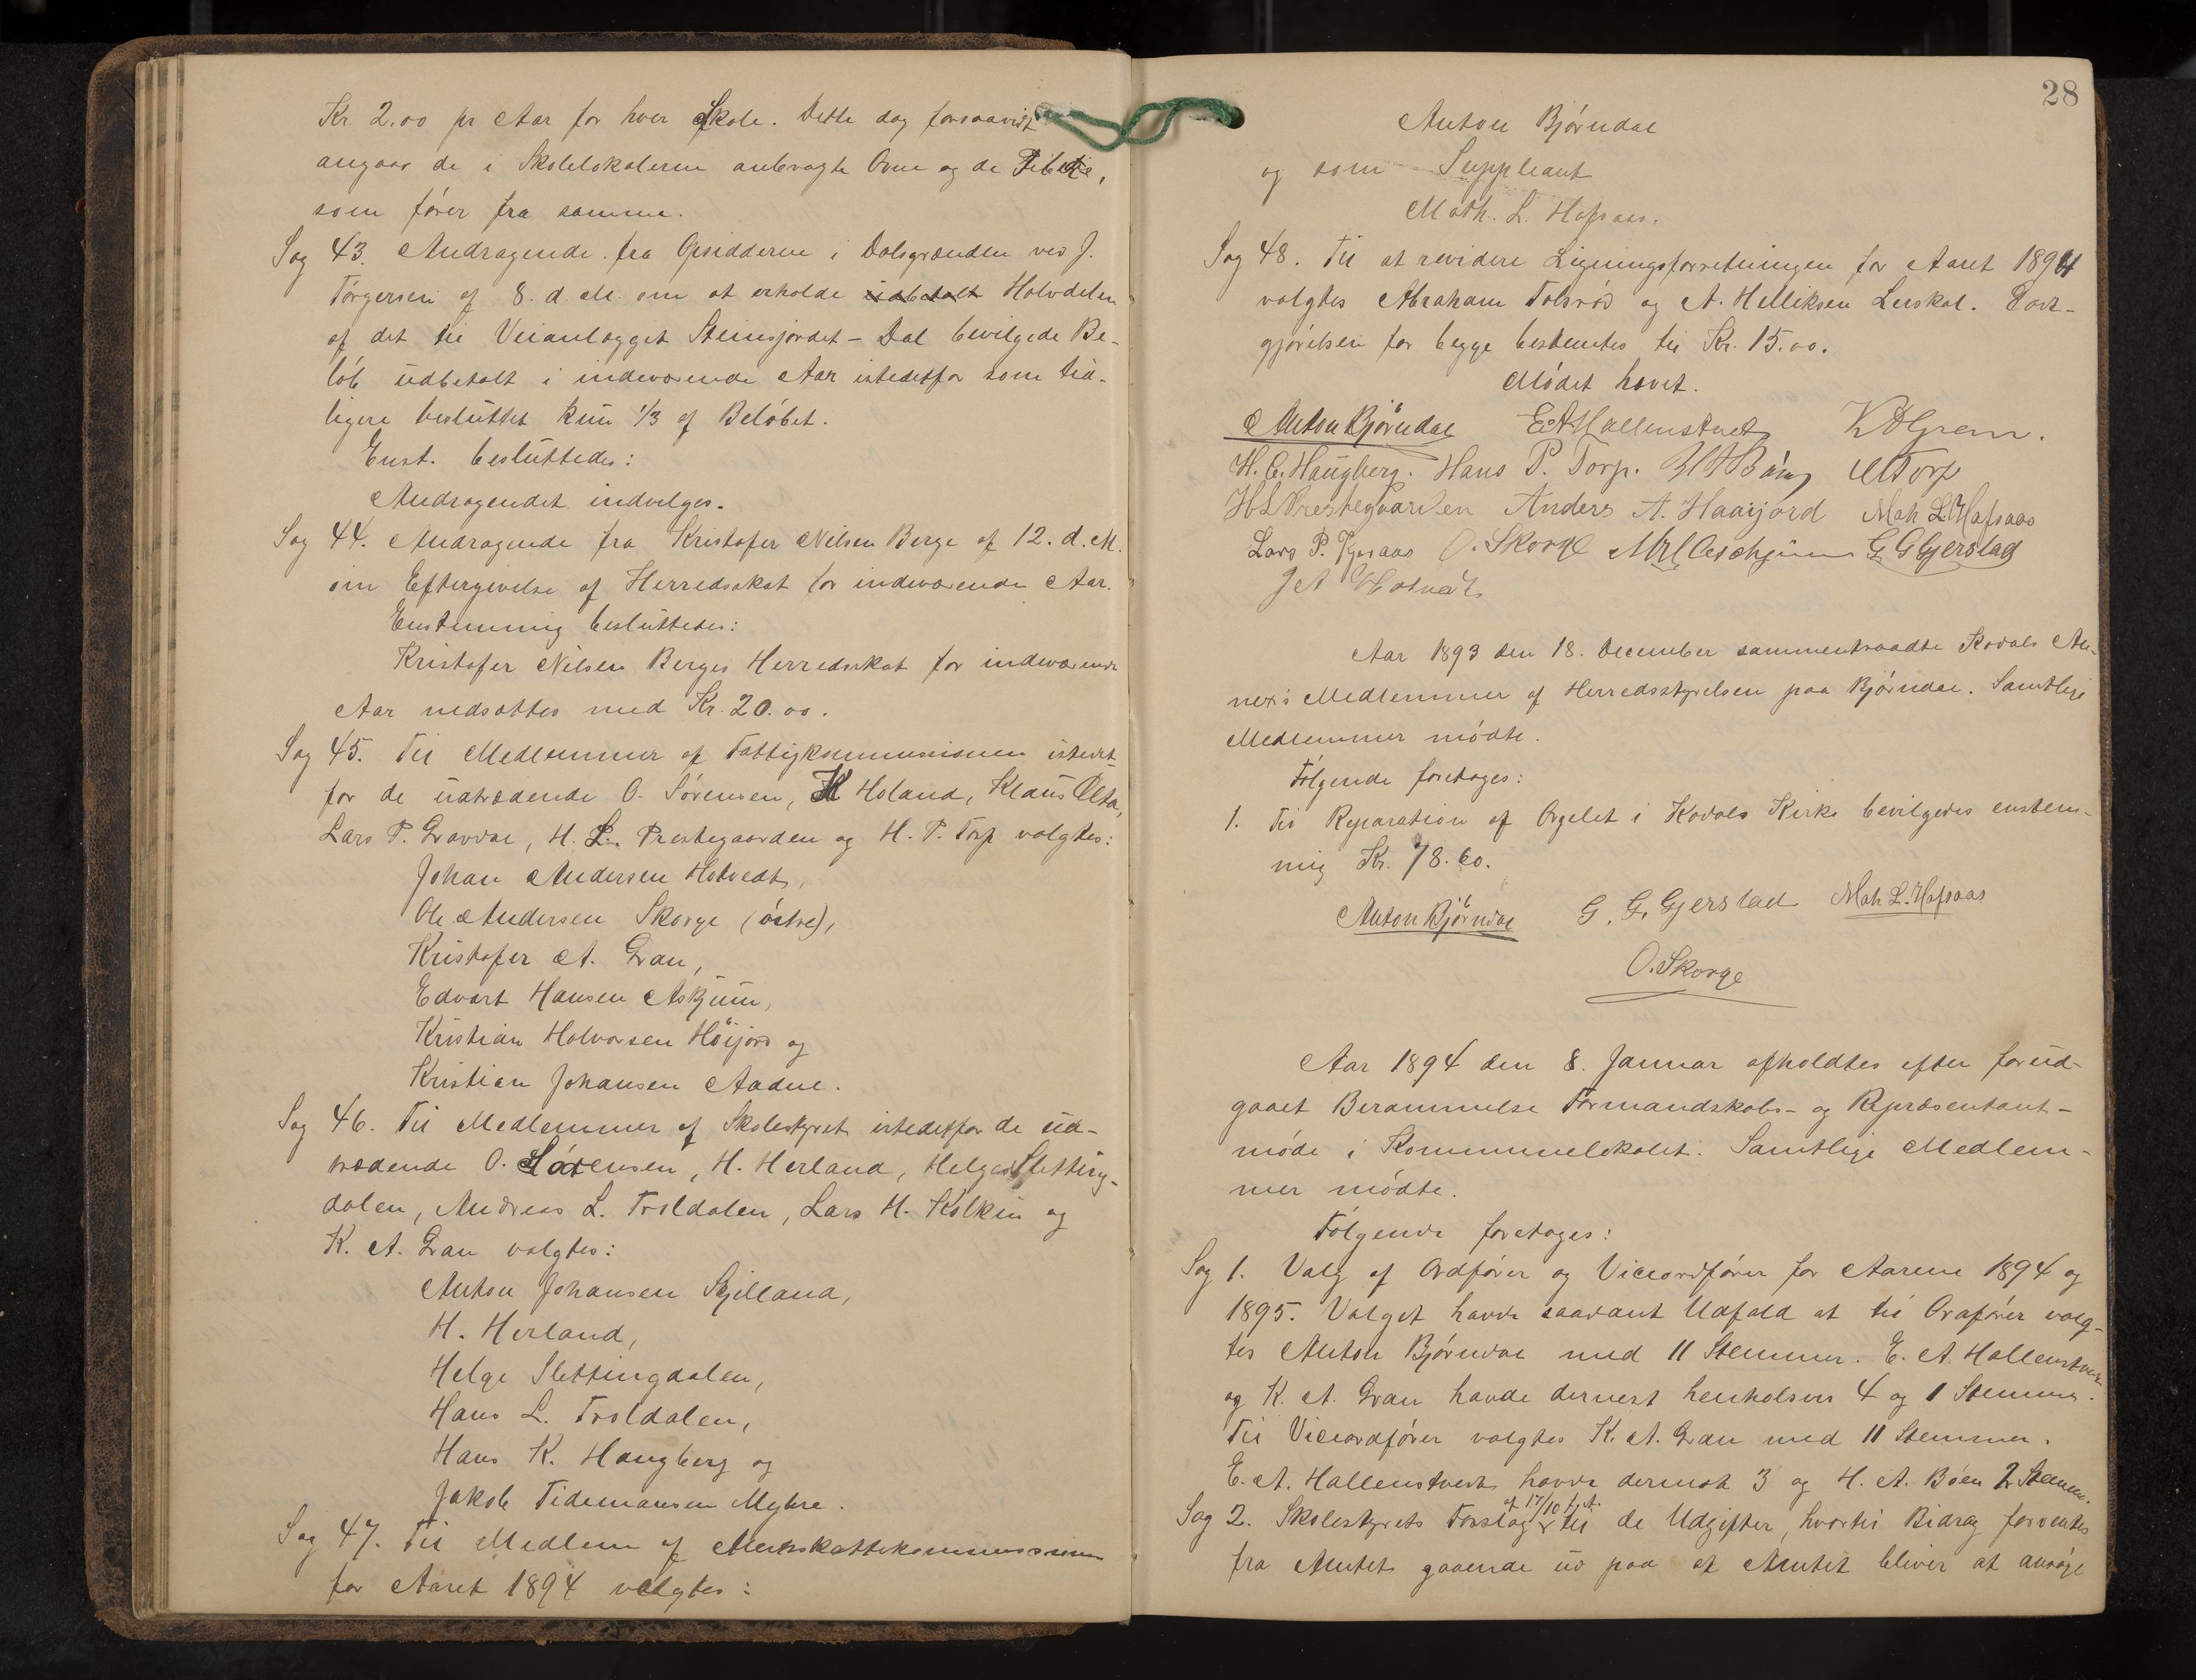 Kr. 2.00 pr Aar for hver Skole. Dette dog forsaavidt
angaar de i Skolelokalerne anbragte Ovne og de
som fører fra samme.
Sag 43. Andragende fra Opsidderne i Dalsgrænden ved J.
Torgersen af 8. d. M. om at erholde udbetalt Halvdelen
af det til Veianlægget Steinsjordet - Dal bevilgede Be-
løb udbetalt i indeværende Aar istedetfor som tid-
ligere besluttet kun 1/3 af Beløbet.
Enst. besluttedes:
Andragendet indvilges.
Sag 44. Andragende fra Kristofer Nilsen Berge af 12. d. M.
om Eftergivelse af Herredsskat for indeværende Aar.
Enstemmig besluttedes:
Kristofer Nilsen Berges Herredsskat for indeværende
Aar nedsattes med Kr. 20.00.
Sag 45. Til Medlemmer af Fattigkommissionen istedet-
for de udtrædende O. Sørensen, K Holand, Klaus
Lars P. Gravdal, H. L. Prestegaarden og H. P. Torp valgtes:
Johan Andersen Holvedt,
Ole Andersen Skorge (østre),
Kristofer A. Gran,
Edvart Hansen Askjum,
Kristian Halvorsen Høijord og
Kristian Johansen Aadne.
Sag 46. Til Medlemmer af Skolestyret istedetfor de ud-
trædende O. Sørensen, H. Herland, Helge Sletting-
dalen, Andreas L. Troldalen, Lars H. Kolkin og
K. A. Gran valgtes:
Anton Johansen Skjelland,
H. Herland,
Helge Slettingdalen,
Hans L. Troldalen,
Hans K. Haugberg og
Jakob Tidemansen Myhre.
Sag 47. Til Medlem af
for Aaret 1894 valgtes:
28
Anton Bjørndal
og som Suppleant
Math. L. Hafsaas.
Sag 48. Til at revidere Ligningsforretningen for Aaret 1894
valgtes Abraham Tolsrød og A. Helliksen Lerskal. Godt-
gjørelsen for begge bestemtes til Kr. 15.00.
Mødet hævet.
Anton Bjørndal E A Hallenstvedt K A Gran.
H. C. Haugberg. Hans P. Torp. H A Bøen Torp
H L Prestegaarden Anders A. Haaijord Math L. Hafsaas
Lars P. O. Skorge G G Gjerstad
J A Holvedt
Aar 1893 den 18. December sammentraadte Kodals An-
nex's Medlemmer af Herredsstyrelsen paa Bjørndal. Samtlige
Medlemmer mødte.
Følgende foretoges:
1. Til Reparation af Orgelet i Kodals Kirke bevilgedes enstem-
mig Kr. 78.60.
Anton Bjørndal G. G. Gjerstad Math L. Hafsaas
O. Skorge
Aar 1894 den 8. Januar afholdtes efter forud-
gaaet Berammelse Formandskabs- og Repræsentant-
møde i Kommunelokalet. Samtlige Medlem-
mer mødte.
Følgende foretoges:
Sag 1. Valg af Ordfører og Viceordfører for Aarene 1894 og
1895. Valget havde saadant Udfald at til Ordfører valg-
tes Anton Bjørndal med 11 Stemmer. E. A. Hallenstvedt
og K. A. Gran havde dernest henholsvis 4 og 1 Stemme.
Til Viceordfører valgtes K. A. Gran med 11 Stemmer.
E. A. Hallenstvedt havde dernæst 3 og H. A. Bøen 2 Stemm.
Sag 2. Skolestyrets Forslag af 17/10 f. A. til de Udgifter, hvortil Bidrag forventes
fra Amtet gaaende ud paa at Amtet bliver at ansøge